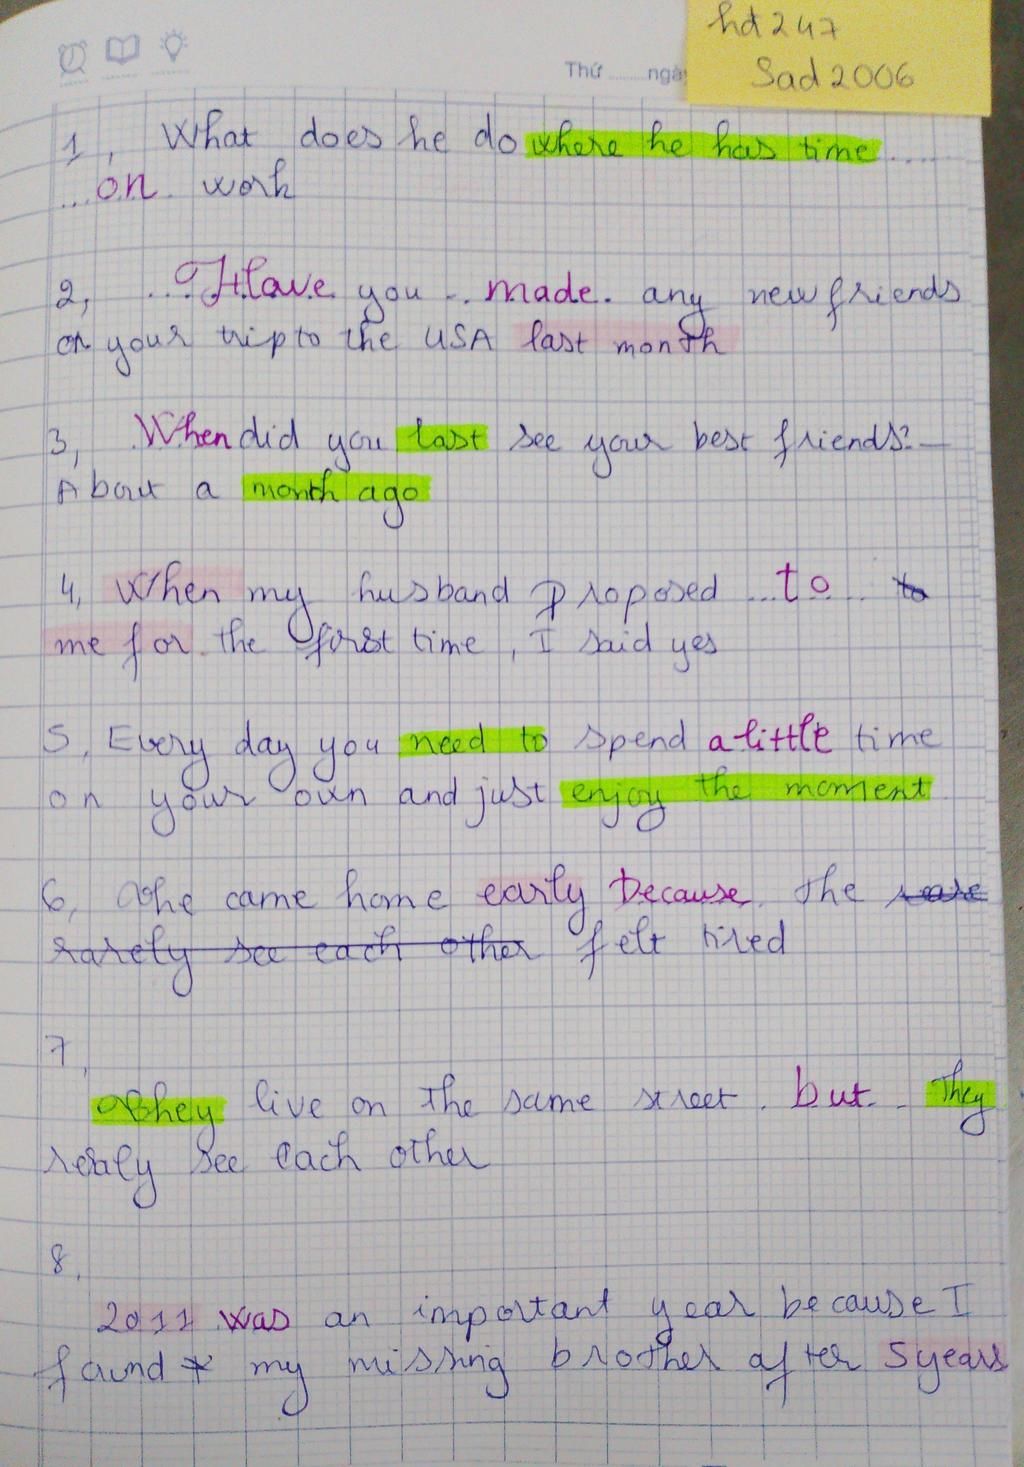 hd247
Sad2006
Thứ ........ngày
1, What does he do where he has time .....
...on.. work
2, ....Have you .. made.. any new friends
on your trip to the USA last month
3, .When did you last see your best friends? —
About a month ago
4, When my husband proposed ...to... to
me for the first time, I said yes
5, Every day you need to spend a little time
on your own and just enjoy the moment
6, She came home early because. the
rarely see each other felt tired
7,
They live on the same street. but.. They
realy see each other
8,
2011 was an important year because I
found my missing brother after 5 years